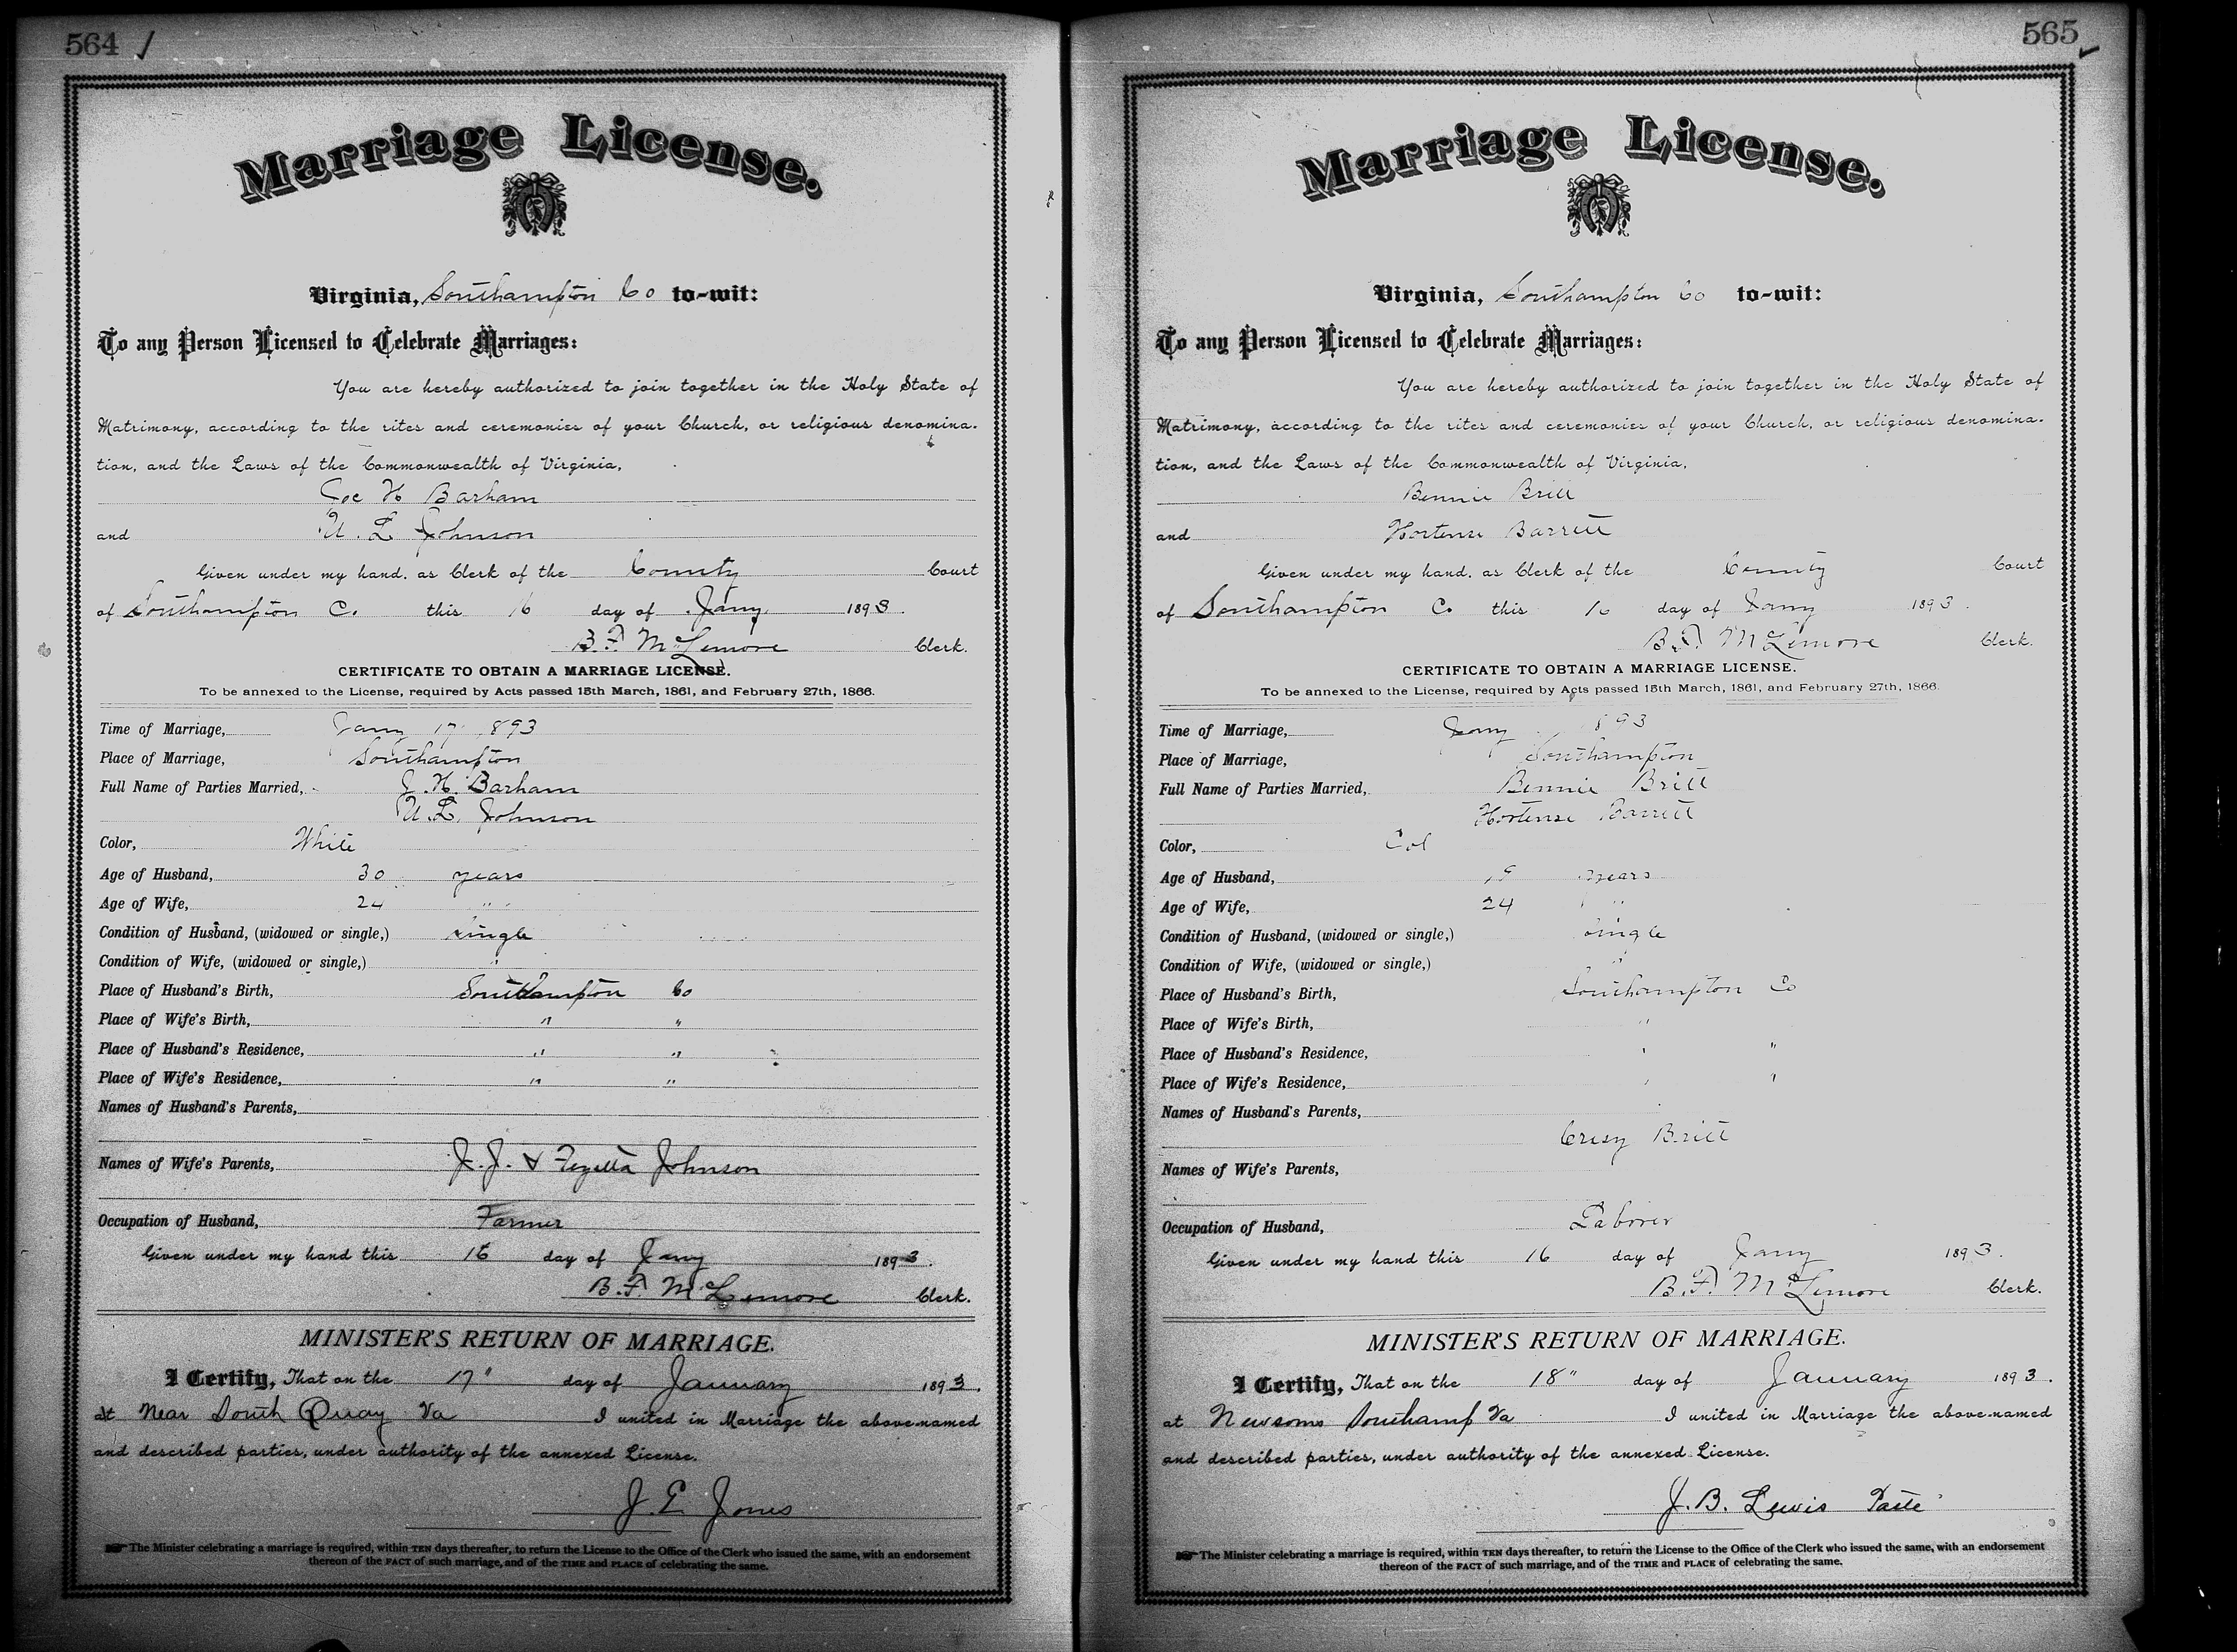 564
Marriage License.
Virginia, Southampton Co to-wit:
To any Person Licensed to Celebrate Marriages:
You are hereby authorized to join together in the Holy State of
Matrimony, according to the rites and ceremonies of your Church, or religious denomina-
tion, and the Laws of the Commonwealth of Virginia,
Joe H Barham
and U. L Johnson
Given under my hand, as Clerk of the County Court
of Southampton Co. this 16 day of Jany 1893.
B. F. McLemore Clerk.
CERTIFICATE TO OBTAIN A MARRIAGE LICENSE.
To be annexed to the License, required by Acts passed 15th March, 1861, and February 27th, 1866.
Time of Marriage, Jany 17 1893
Place of Marriage, Southampton
Full Name of Parties Married, J. H. Barham
U. L. Johnson
Color, White
Age of Husband, 30 years
Age of Wife, 24 " "
Condition of Husband, (widowed or single,) single
Condition of Wife, (widowed or single,) "
Place of Husband's Birth, Southampton Co
Place of Wife's Birth, " "
Place of Husband's Residence, " "
Place of Wife's Residence, " "
Names of Husband's Parents,
Names of Wife's Parents, J. J. & Johnson
Occupation of Husband, Farmer
Given under my hand this 16 day of Jany 1893.
B. F. McLemore Clerk.
MINISTER'S RETURN OF MARRIAGE.
I Certify, That on the 17" day of January 1893.
at Near South Quay Va I united in Marriage the above-named
and described parties, under authority of the annexed License.
J. E. Jones
The Minister celebrating a marriage is required, within TEN days thereafter, to return the License to the Office of the Clerk who issued the same, with an endorsement
thereon of the FACT of such marriage, and of the TIME and PLACE of celebrating the same.
565
Marriage License.
Virginia, Southampton Co to-wit:
To any Person Licensed to Celebrate Marriages:
You are hereby authorized to join together in the Holy State of
Matrimony, according to the rites and ceremonies of your Church, or religious denomina-
tion, and the Laws of the Commonwealth of Virginia,
Bennie Britt
and Hortense Barrett
Given under my hand, as Clerk of the County Court
of Southampton Co this 16 day of Jany 1893.
B. F. McLemore Clerk.
CERTIFICATE TO OBTAIN A MARRIAGE LICENSE.
To be annexed to the License, required by Acts passed 15th March, 1861, and February 27th, 1866.
Time of Marriage, Jany 1893
Place of Marriage, Southampton
Full Name of Parties Married, Bennie Britt
Hortense Barrett
Color, Col
Age of Husband, years
Age of Wife, 24 "
Condition of Husband, (widowed or single,) single
Condition of Wife, (widowed or single,) "
Place of Husband's Birth, Southampton Co
Place of Wife's Birth, "
Place of Husband's Residence, " "
Place of Wife's Residence, " "
Names of Husband's Parents,
Crisy Britt
Names of Wife's Parents,
Occupation of Husband, Laborer
Given under my hand this 16 day of Jany 1893.
B. F. McLemore Clerk.
MINISTER'S RETURN OF MARRIAGE.
I Certify, That on the 18" day of January 1893.
at Newsoms Southamp Va I united in Marriage the above-named
and described parties, under authority of the annexed License.
J. B. Lewis
The Minister celebrating a marriage is required, within TEN days thereafter, to return the License to the Office of the Clerk who issued the same, with an endorsement
thereon of the FACT of such marriage, and of the TIME and PLACE of celebrating the same.